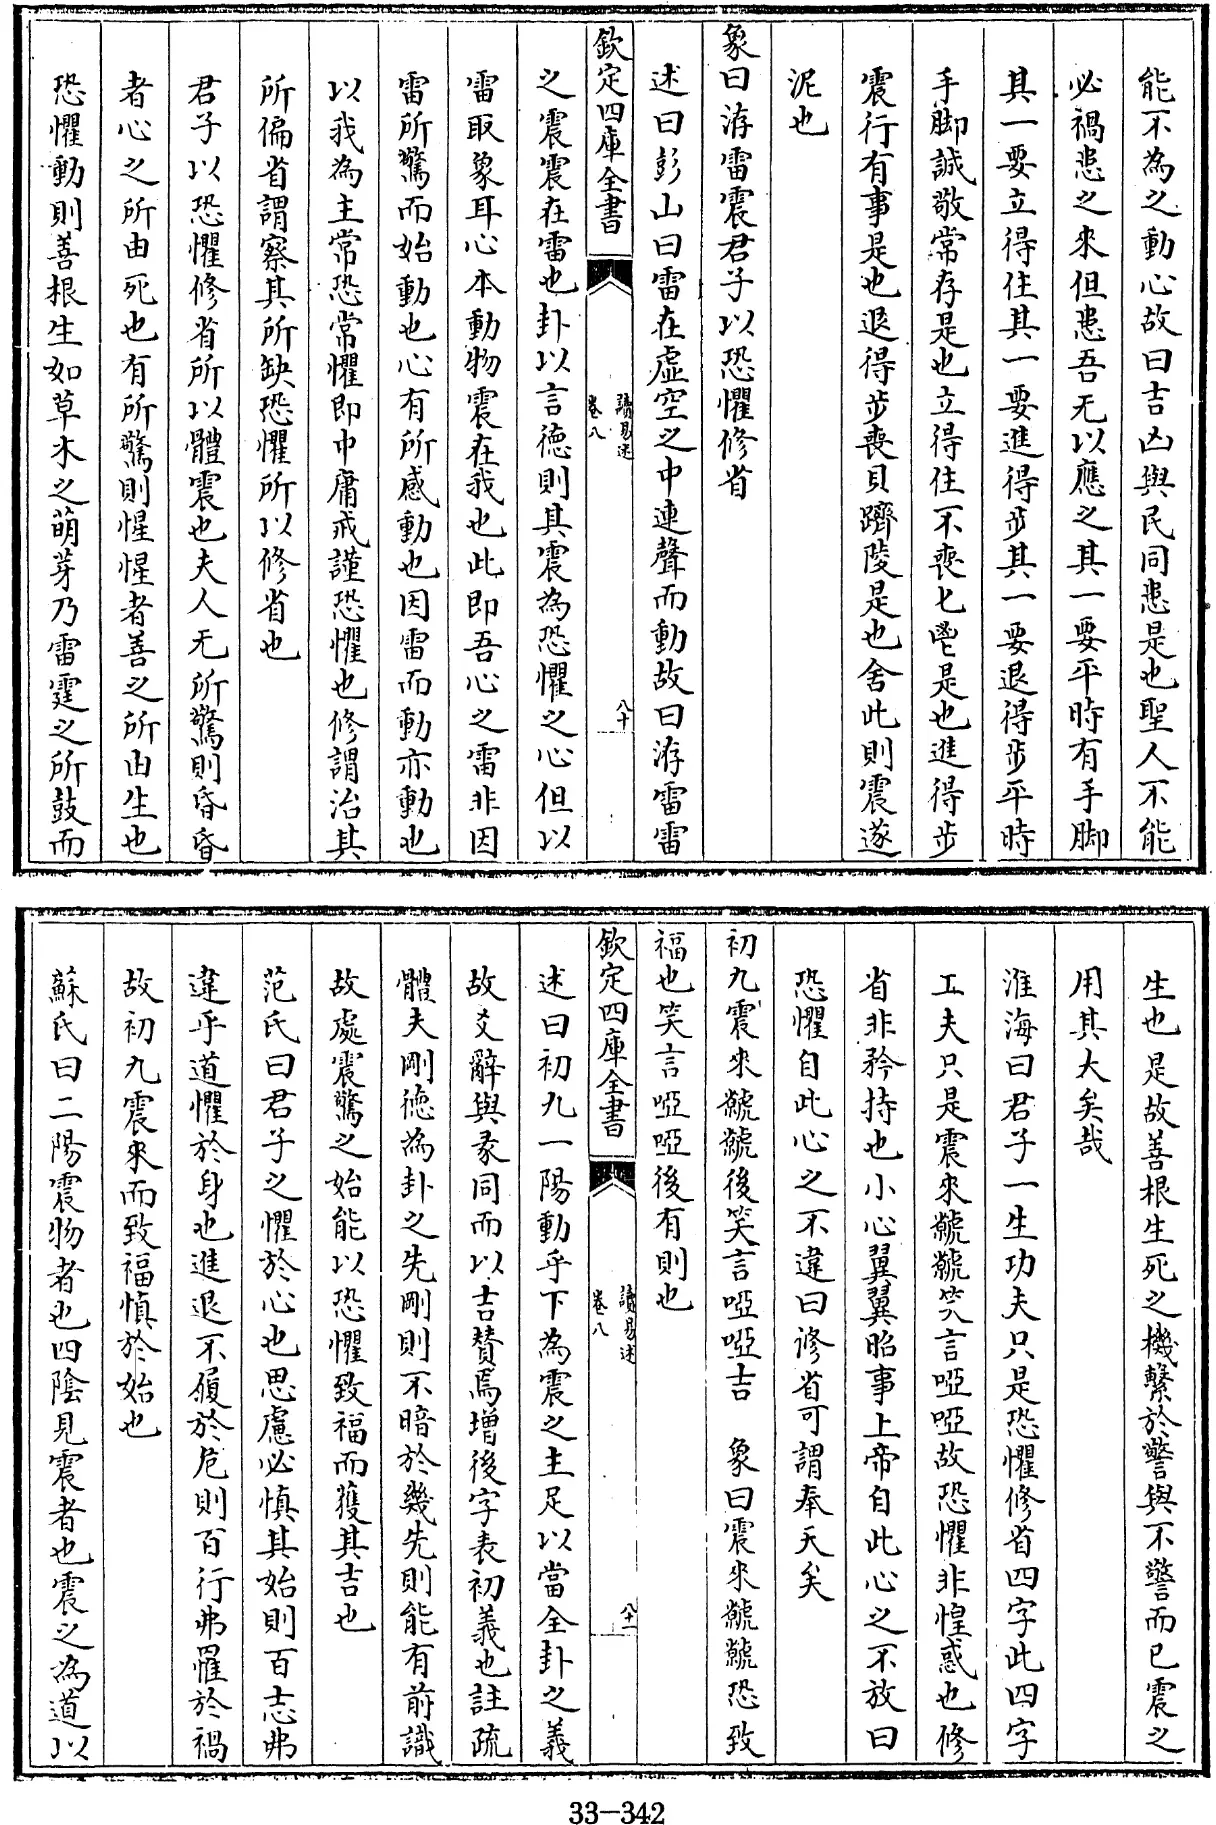 能不為之動心故曰吉凶與民同患是也聖人不能
必禍患之來但患吾无以應之其一要平時有手脚
其一要立得住其一要進得步其一要退得步平時
手脚誠敬常存是也立得住不喪匕鬯是也進得步
震行有事是也退得步喪貝躋陵是也舍此則震遂
泥也
象曰洊雷震君子以恐懼修省
述曰彭山曰雷在虛空之中連聲而動故曰洊雷雷
欽定四庫全書
讀易述
卷八
八十
之震震在雷也卦以言德則其震為恐懼之心但以
雷取象耳心本動物震在我也此即吾心之雷非因
雷所驚而始動也心有所感動也因雷而動亦動也
以我為主常恐常懼即中庸戒謹恐懼也修謂治其
所偏省謂察其所缺恐懼所以修省也
君子以恐懼修省所以體震也夫人无所驚則昏昏
者心之所由死也有所驚則惺惺者善之所由生也
恐懼動則善根生如草木之萌芽乃雷霆之所鼓而
生也是故善根生死之機繫於警與不警而已震之
用其大矣哉
淮海曰君子一生功夫只是恐懼修省四字此四字
工夫只是震來虩虩笑言啞啞故恐懼非惶惑也修
省非矜持也小心翼翼昭事上帝自此心之不放曰
恐懼自此心之不違曰修省可謂奉天矣
初九震來虩虩後笑言啞啞吉 象曰震來虩虩恐致
福也笑言啞啞後有則也
欽定四庫全書
讀易述
卷八
八十一
述曰初九一陽動乎下為震之主足以當全卦之義
故爻辭與彖同而以吉贊焉增後字表初義也註疏
體夫剛德為卦之先剛則不暗於幾先則能有前識
故處震驚之始能以恐懼致福而獲其吉也
范氏曰君子之懼於心也思慮必慎其始則百志弗
違乎道懼於身也進退不履於危則百行弗罹於禍
故初九震來而致福慎於始也
蘇氏曰二陽震物者也四陰見震者也震之為道以
33-342